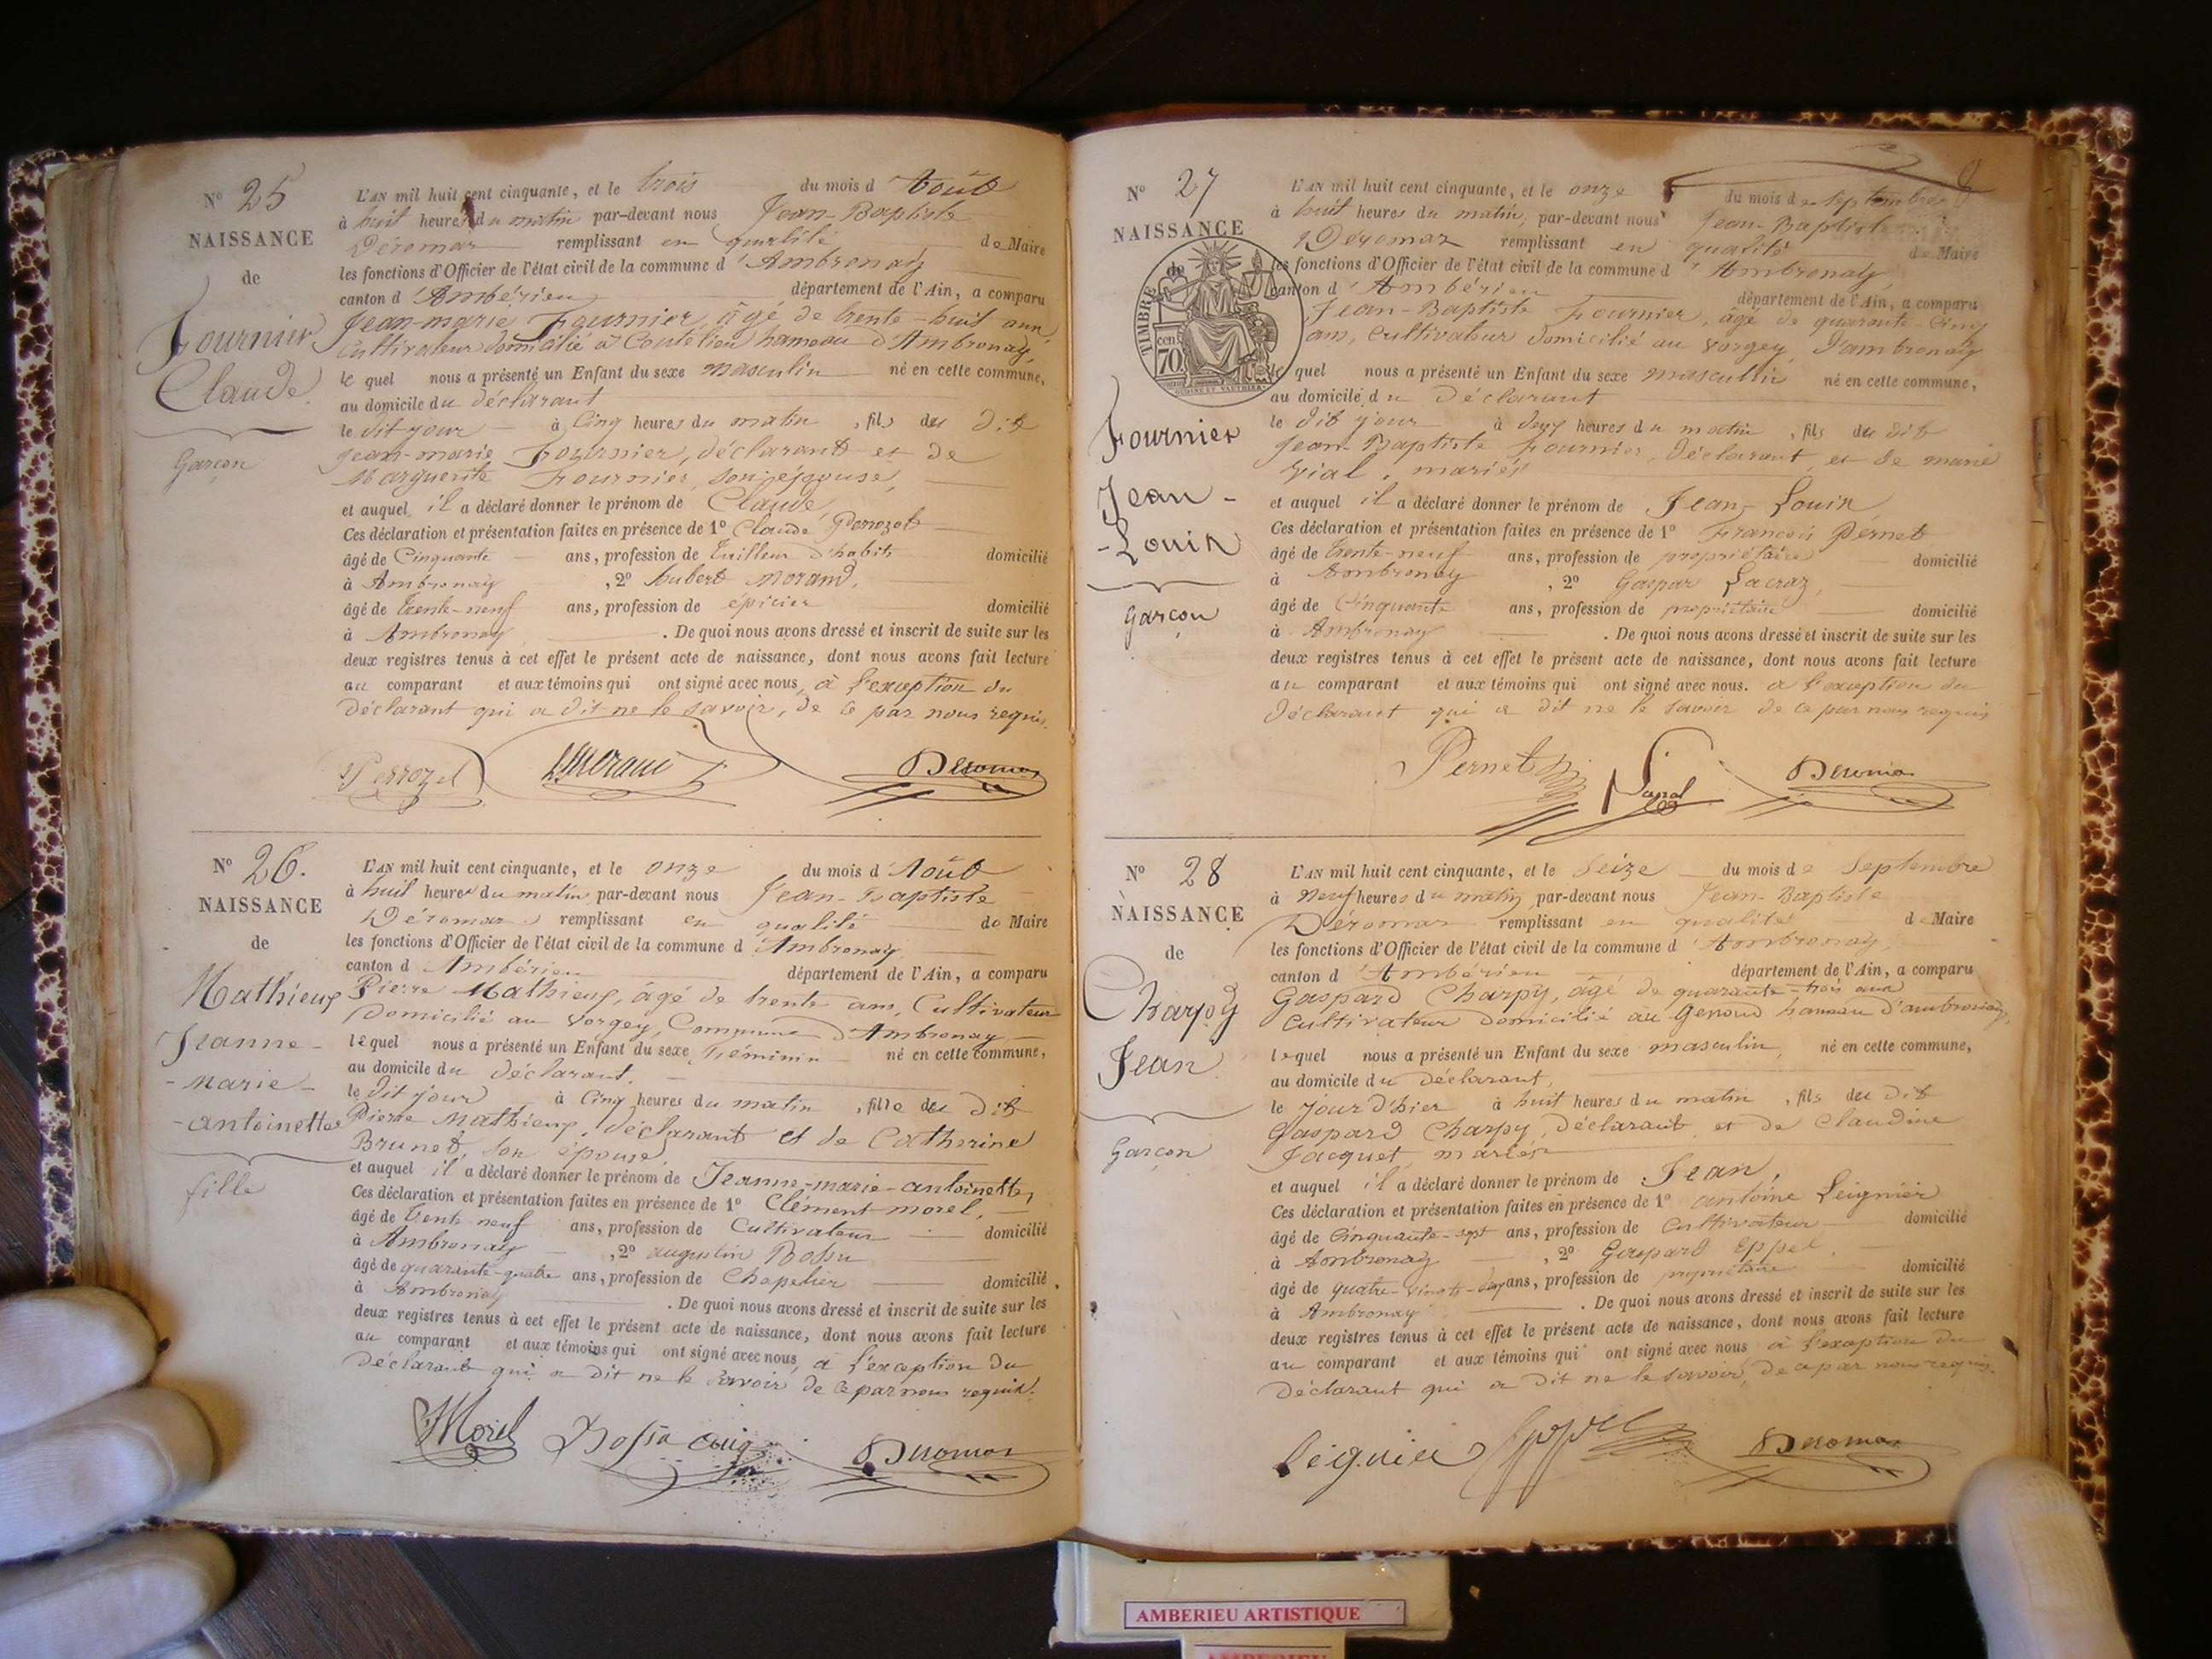 N° 25
NAISSANCE
de
Fournier
Claude.
Garçon
L'AN mil huit cent cinquante, et le trois du mois d'Août
à huit heures du matin par-devant nous Jean-Baptiste
Déromas remplissant en qualité de Maire
les fonctions d'Officier de l'état civil de la commune d'Ambronay
canton d'Ambérieu département de l'Ain, a comparu
Jean-marie Fournier, âgé de trente-huit ans,
Cultivateur domicilié à Coutelieu hameau d'Ambronay,
le quel nous a présenté un Enfant du sexe masculin né en cette commune,
au domicile du déclarant
le dit jour à Cinq heures du matin, fils du dit
Jean-marie Fournier, déclarant et de
Marguerite Fournier, son épouse,
et auquel il a déclaré donner le prénom de Claude
Ces déclaration et présentation faites en présence de 1° Claude Perrozet
âgé de Cinquante ans, profession de Tailleur d'habits domicilié
à Ambronay, 2° hubert morand,
âgé de trente-neuf ans, profession de épicier domicilié
à Ambronay. De quoi nous avons dressé et inscrit de suite sur les
deux registres tenus à cet effet le présent acte de naissance, dont nous avons fait lecture
au comparant et aux témoins qui ont signé avec nous, à l'exception du
déclarant qui a dit ne le savoir, de ce par nous requis.
Perrozet Morand Deromas
N° 26.
NAISSANCE
de
Mathieux
Jeanne-
-marie-
-antoinette
fille
L'AN mil huit cent cinquante, et le onze du mois d'Août
à huit heures du matin par-devant nous Jean-Baptiste
Déromas remplissant en qualité de Maire
les fonctions d'Officier de l'état civil de la commune d'Ambronay
canton d'Ambérieu département de l'Ain, a comparu
Pierre Mathieux, âgé de trente ans, Cultivateur
domicilié au Vorgey, Commune d'Ambronay
lequel nous a présenté un Enfant du sexe féminin né en cette commune,
au domicile du déclarant.
le dit jour à Cinq heures du matin, fille du dit
Pierre Mathieux, déclarant et de Catherine
Brunet, son épouse,
et auquel il a déclaré donner le prénom de Jeanne-marie-antoinette,
Ces déclaration et présentation faites en présence de 1° Clément morel,
âgé de trente neuf ans, profession de Cultivateur domicilié
à Ambronay, 2° augustin Bossu
âgé de quarante-quatre ans, profession de Chapelier domicilié
à Ambronay. De quoi nous avons dressé et inscrit de suite sur les
deux registres tenus à cet effet le présent acte de naissance, dont nous avons fait lecture
au comparant et aux témoins qui ont signé avec nous, à l'exception du
déclarant qui a dit ne le savoir de ce par nous requis.
Morel Bossu aug Deromas
N° 27
NAISSANCE
de
TIMBRE
70 cen
Fournier
Jean-
-Louis
Garçon
L'AN mil huit cent cinquante, et le onze du mois de septembre
à huit heures du matin, par-devant nous Jean-Baptiste
Déromas remplissant en qualité de Maire
les fonctions d'Officier de l'état civil de la commune d'Ambronay,
canton d'Ambérieu département de l'Ain, a comparu
Jean-Baptiste Fournier, âgé de quarante-Cinq
ans, Cultivateur domicilié au Vorgey, d'ambronay
le quel nous a présenté un Enfant du sexe masculin né en cette commune,
au domicile du Déclarant
le dit jour à deux heures du matin, fils du dit
Jean-Baptiste Fournier, Déclarant, et de marie
Vial, mariés
et auquel il a déclaré donner le prénom de Jean-Louis
Ces déclaration et présentation faites en présence de 1° François Pernet
âgé de trente-neuf ans, profession de propriétaire domicilié
à Ambronay, 2° Gaspar Lacraz,
âgé de Cinquante ans, profession de propriétaire domicilié
à Ambronay. De quoi nous avons dressé et inscrit de suite sur les
deux registres tenus à cet effet le présent acte de naissance, dont nous avons fait lecture
au comparant et aux témoins qui ont signé avec nous. à l'exception du
déclarant qui a dit ne le savoir de ce par nous requis
Pernet Deromas
N° 28
NAISSANCE
de
Charpy
Jean
Garçon
L'AN mil huit cent cinquante, et le Seize du mois de Septembre
à Neuf heures du matin par-devant nous Jean-Baptiste
Déromas remplissant en qualité d Maire
les fonctions d'Officier de l'état civil de la commune d'Ambronay,
canton d'Ambérieu département de l'Ain, a comparu
Gaspard Charpy, âgé de quarante-trois ans
Cultivateur domicilié au Genoud hameau d'ambronay,
lequel nous a présenté un Enfant du sexe masculin, né en cette commune,
au domicile du déclarant,
le jour d'hier à huit heures du matin, fils du dit
Gaspard Charpy, Déclarant, et de Claudine
Jacquet, mariés
et auquel il a déclaré donner le prénom de Jean,
Ces déclaration et présentation faites en présence de 1° antoine Leignier
âgé de Cinquante-sept ans, profession de Cultivateur domicilié
à Ambronay, 2° Gaspard Eppel,
âgé de quatre-vingts-deux ans, profession de propriétaire domicilié
à Ambronay. De quoi nous avons dressé et inscrit de suite sur les
deux registres tenus à cet effet le présent acte de naissance, dont nous avons fait lecture
au comparant et aux témoins qui ont signé avec nous à l'exception du
Déclarant qui a dit ne le savoir, de ce par nous requis.
Leignier Eppel Deromas
AMBERIEU ARTISTIQUE
AMBERIEU